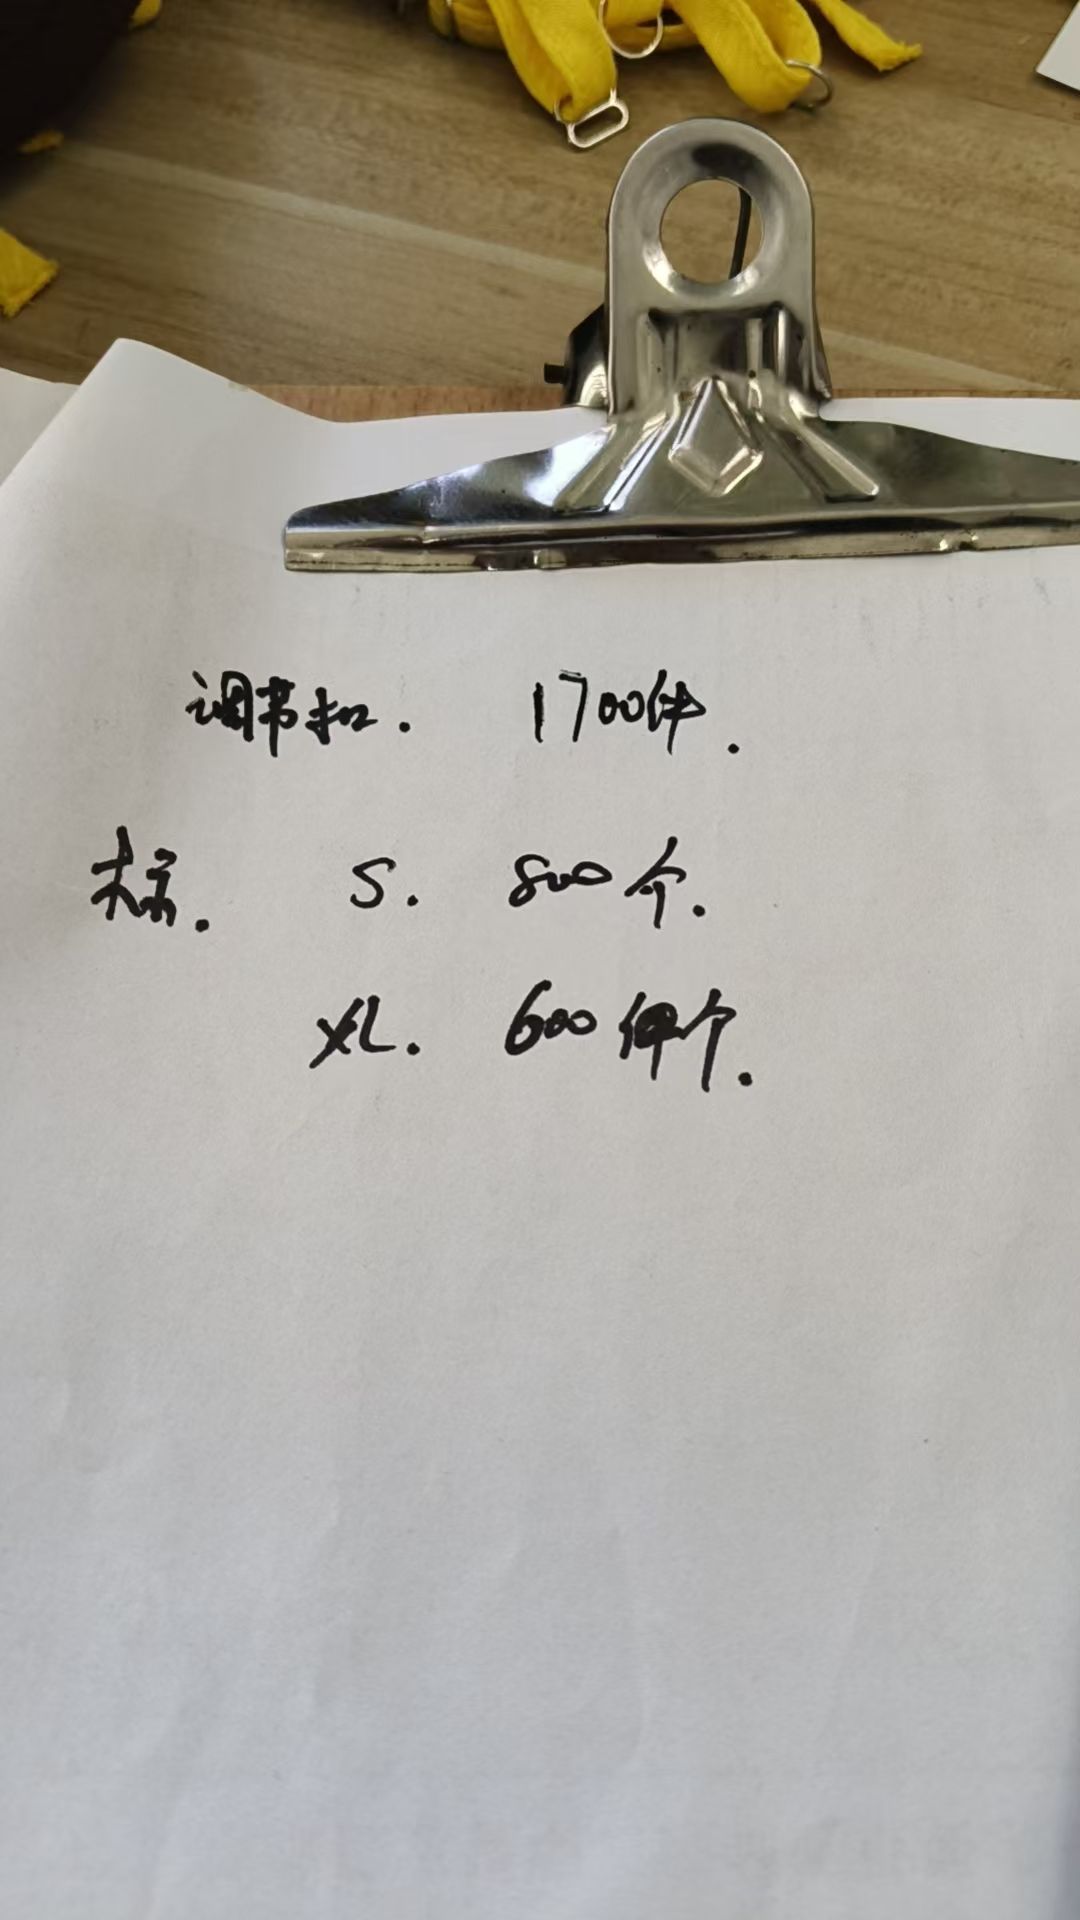 调节扣. 1700件.
标. S. 800个.
XL. 600个.